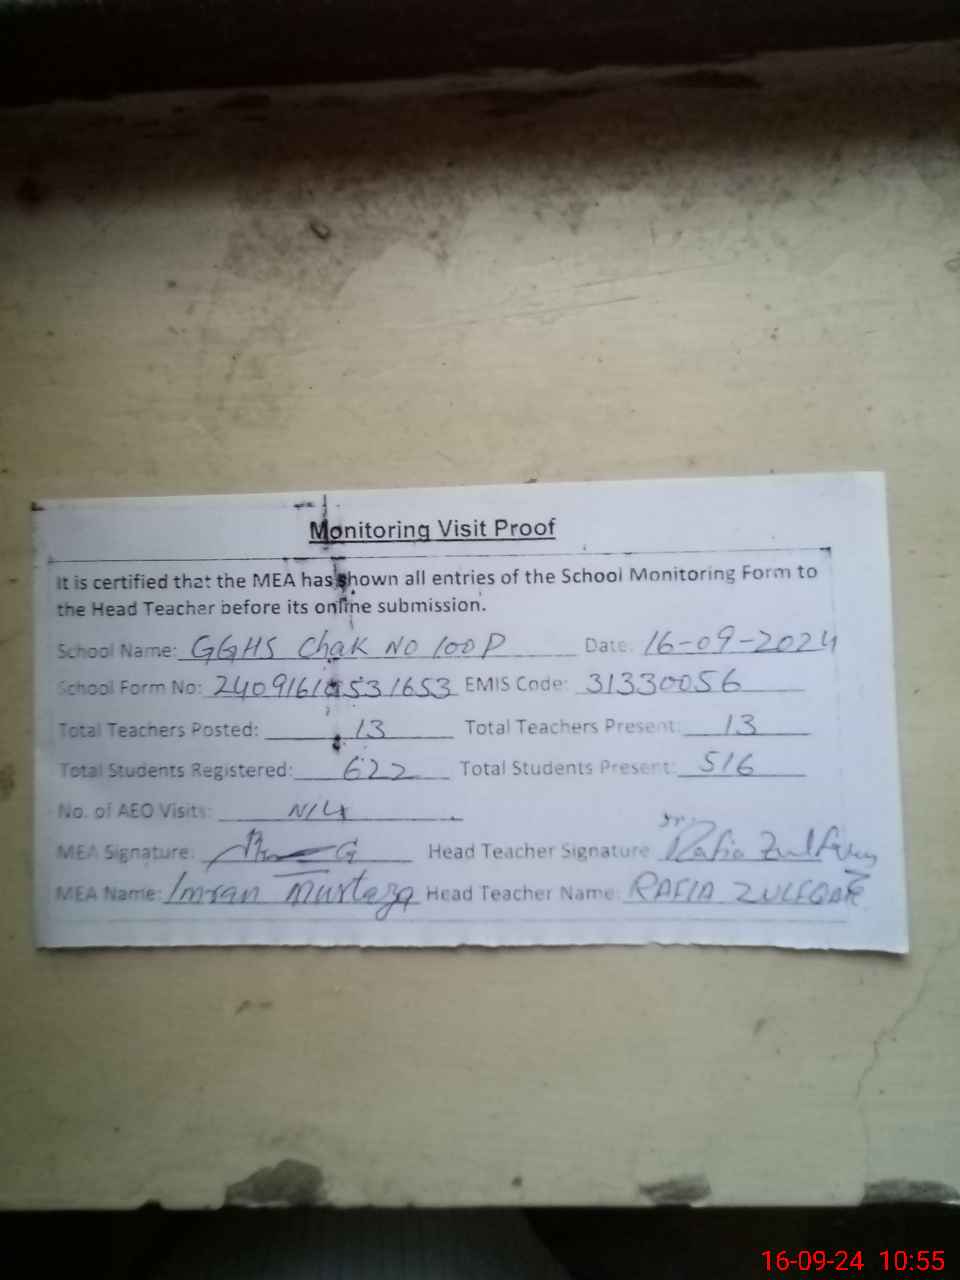 Monitoring Visit Proof
It is certified that the MEA has shown all entries of the School Monitoring Form to
the Head Teacher before its online submission.
School Name: GGHS Chak No 100P Date: 16-09-2024
School Form No: EMIS Code: 31330056
Total Teachers Posted: 13 Total Teachers Present: 13
Total Students Registered: 622 Total Students Present: 516
No. of AEO Visits:
MEA Signature: Head Teacher Signature Rafia
MEA Name: Imran Murtaza Head Teacher Name: RAFIA ZULFQAR
16-09-24 10:55